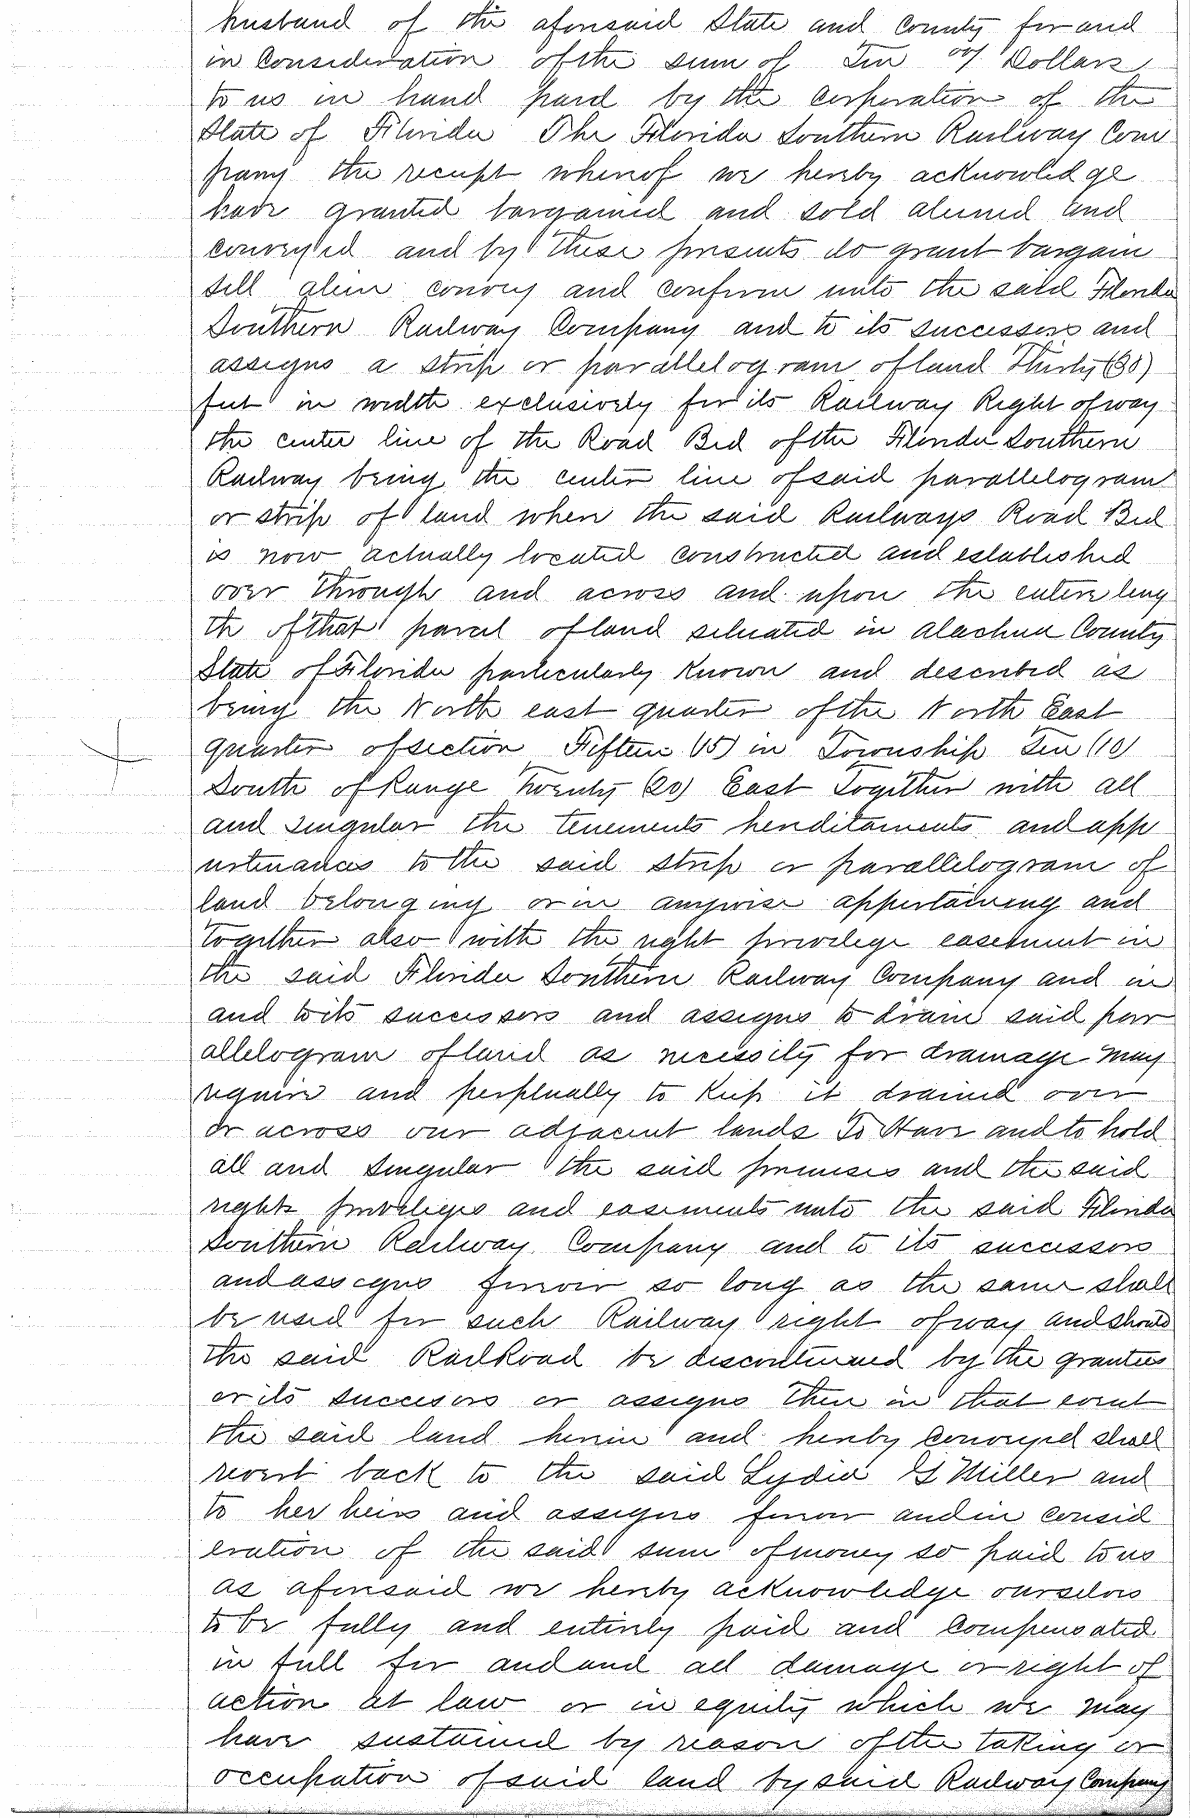 husband of the aforesaid State and County for and
in Consideration of the sum of Ten Dollars
to us in hand paid by the Corporation of the
State of Florida The Florida Southern Railway Com
pany the receipt whereof we hereby acknowledge
have granted bargained and sold aliened and
conveyed and by these presents do grant bargain
sell alien convey and confirm unto the said Florida
Southern Railway Company and to its successors and
assigns a strip or parallelogram of land Thirty (30)
feet in width exclusively for its Railway Right of way
the center line of the Road Bed of the Florida Southern
Railway being the center line of said parallelogram
or strip of land when the said Railways Road Bed
is now actually located constructed and established
over through and across and upon the entire leng
th of that parcel of land situated in Alachua County
State of Florida particularly known and described as
being the North east quarter of the North East
quarter of section Fifteen (15) in Township Ten (10)
South of Range Twenty (20) East Together with all
and singular the tenements herditaments and app
urtenances to the said strip or parallelogram of
land belonging or in anywise appertaining and
together also with the right privelege easement in
the said Florida Southern Railway Company and in
and to its successors and assigns to drain said par
allelogram of land as necessity for drainage may
require and perpetually to keep it drained over
or across our adjacent lands To Have and to hold
all and singular the said premises and the said
rights priveleges and easements unto the said Florida
Southern Railway Company and to its successors
and assigns forever so long as the same shall
be used for such Railway right of way and should
the said RailRoad be discontinued by the grantees
or its succesors or assigns then in that event
the said land herein and hereby conveyed shall
revert back to the said Lydia G Miller and
to her heirs and assigns forever and in consid
eration of the said sum of money so paid to us
as aforesaid we hereby acknowledge ourselves
to be fully and entirely paid and compensated
in full for and and all damage or right of
action at law or in equity which we may
have sustained by reason of the taking or
occupation of said land by said Railway Company